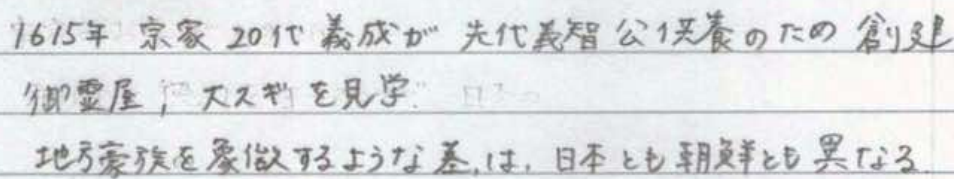 1615年 宗家 20代 義成が 先代義智公供養のため 創建
御霊屋, 大スギを見学.
地方豪族を象徴するような墓は, 日本とも朝鮮とも異なる.